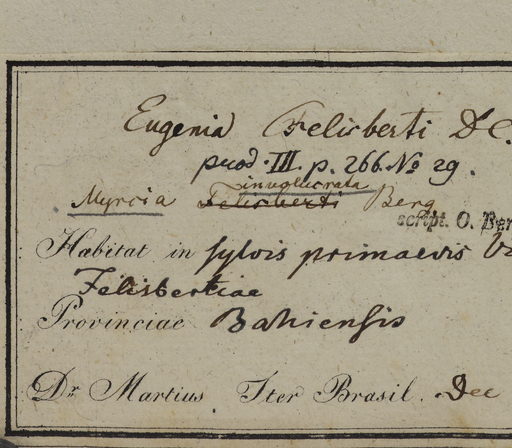 Eugenia Felisberti DC.
prod. III. p. 266. No 29.
involucrata
Myrcia Felisberti Berg
script. O. Ber
Habitat in sylvis primaevis
Felisbertiae
Provinciae Bahiensis
Dr. Martius Iter Brasil. Dec